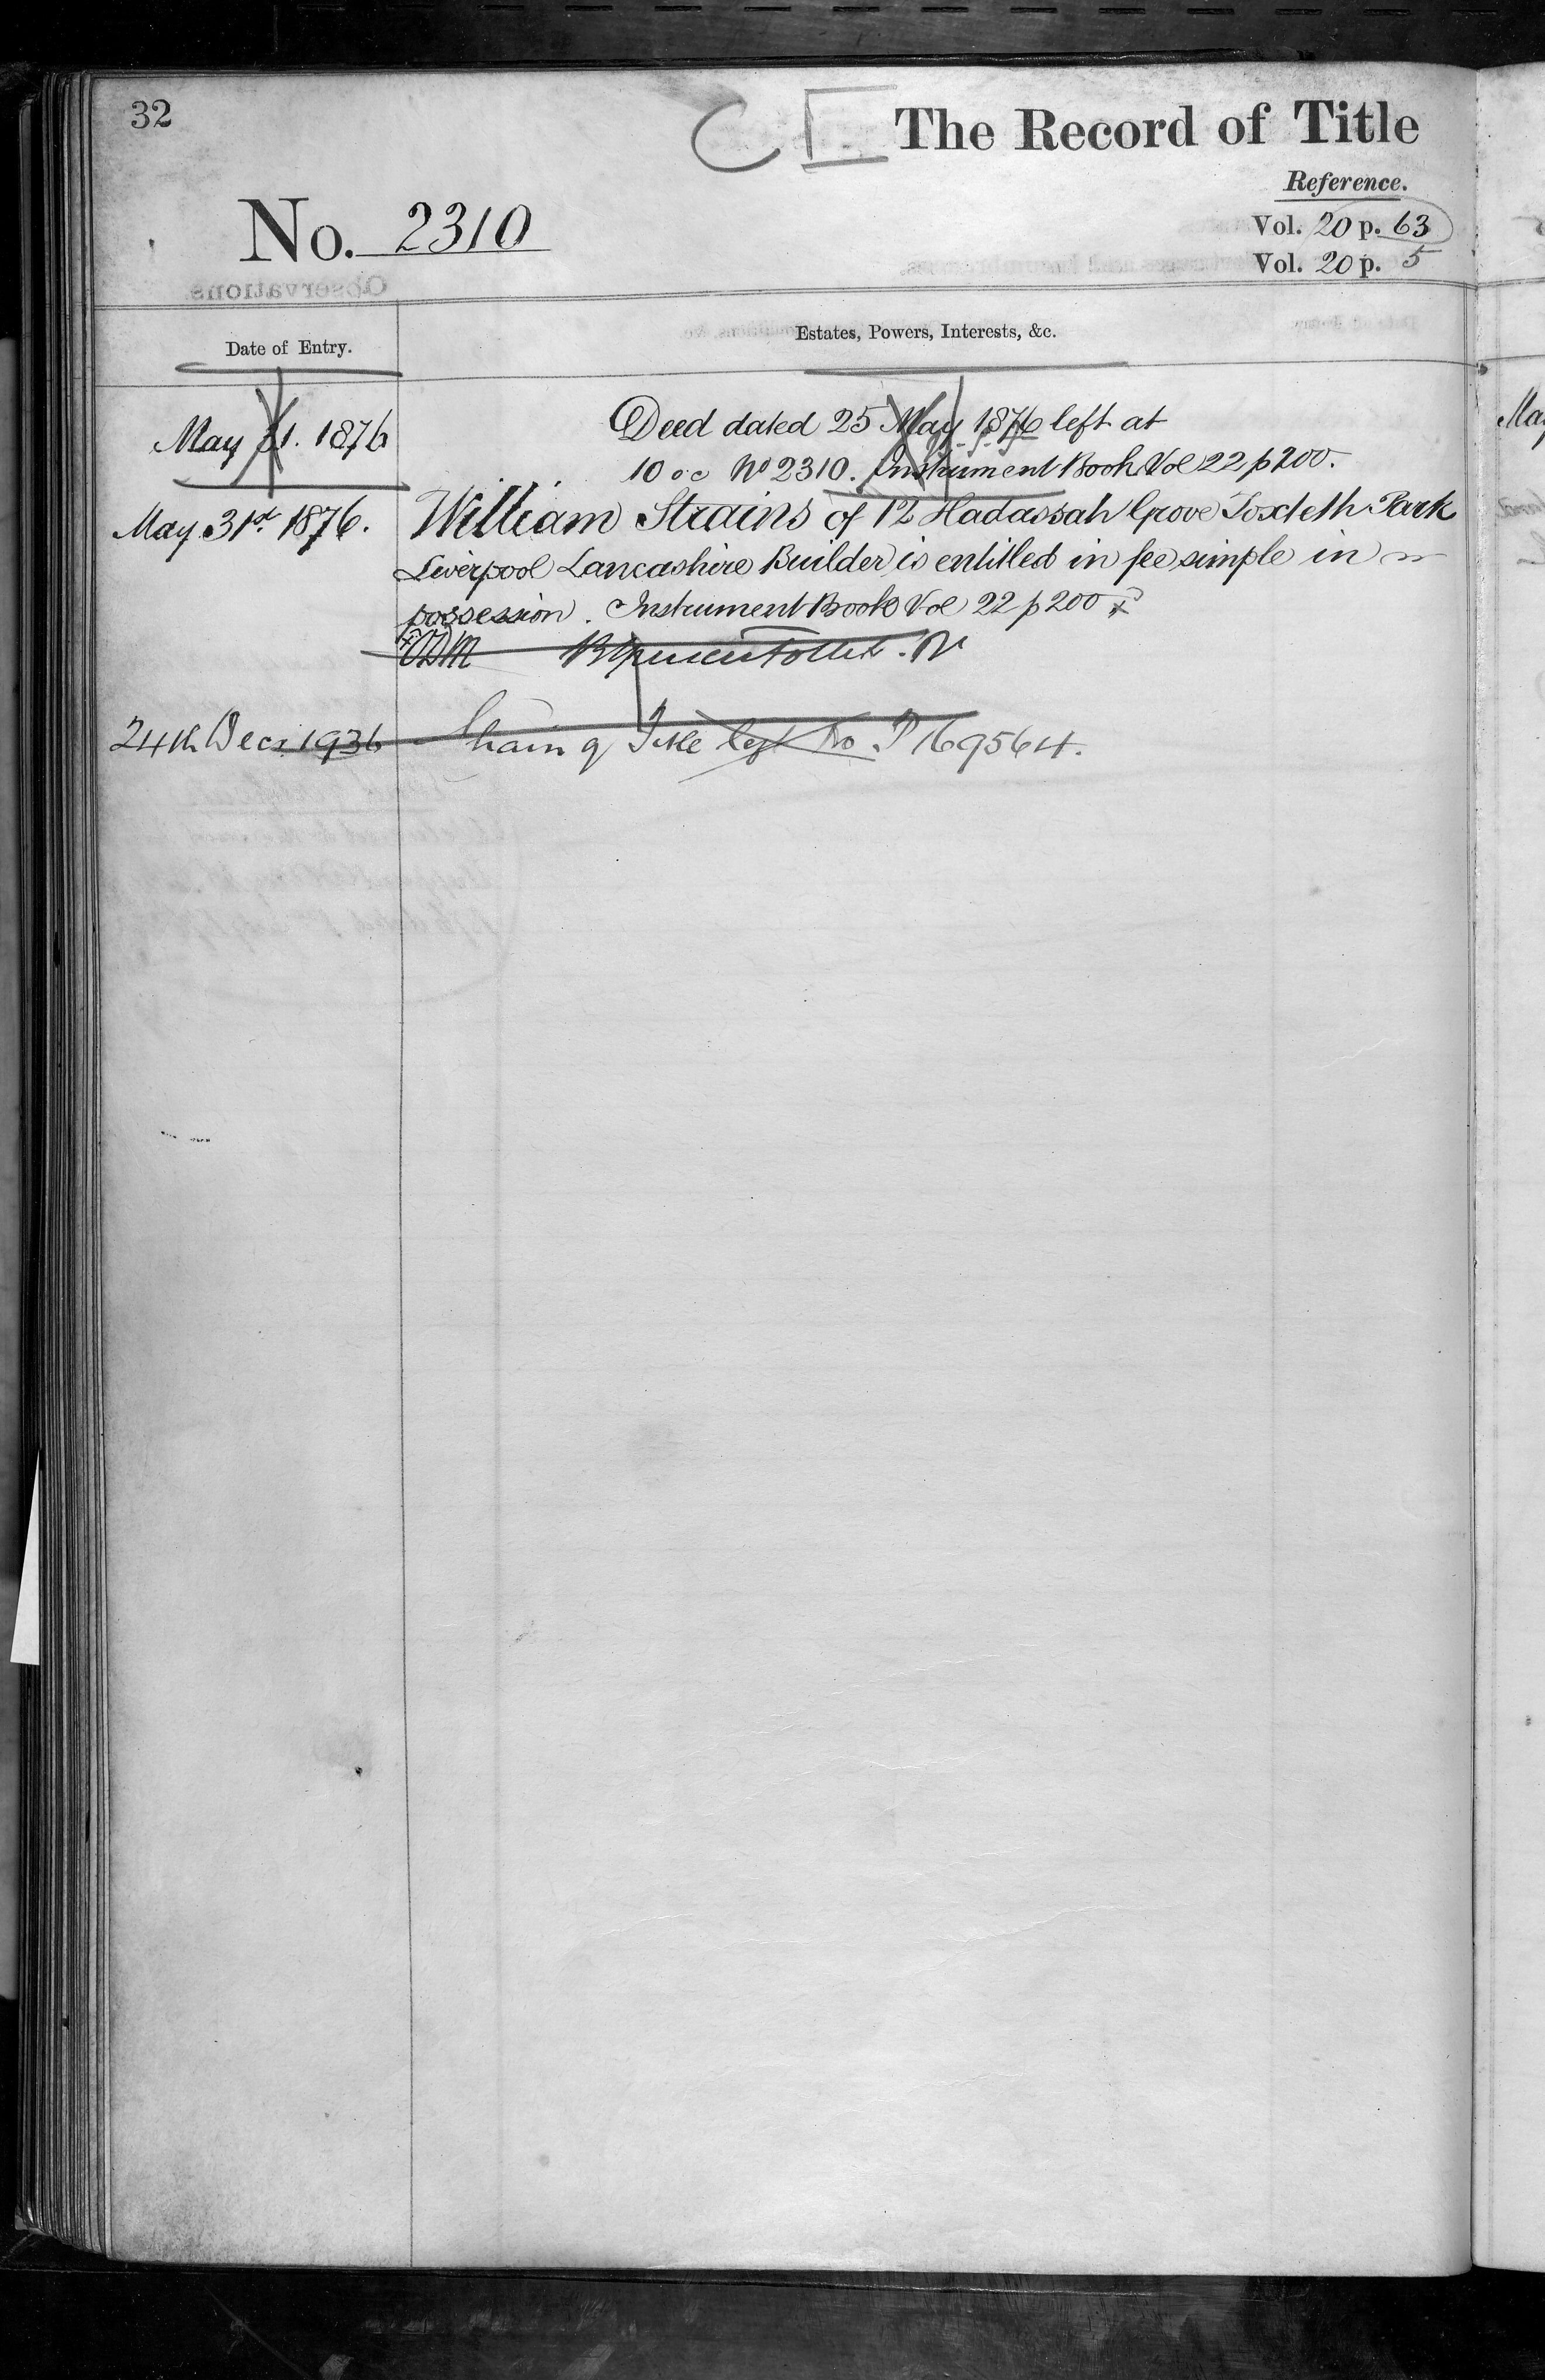 32
The Record of Title
Reference.
No. 2310
Vol. 20 p. 63
Vol. 20 p. 5
Date of Entry.
Estates, Powers, Interests, &c.
May 31. 1876
Deed dated 25 May 1876 left at
10 oc No 2310. Instrument Book Vol 22 p 200.
May 31st 1876.
William Strains of 12 Hadassah Grove Toxteth Park
Liverpool Lancashire Builder is entitled in fee simple in
possession. Instrument Book Vol 22 p 200
24th Decr. 1936
Chain of Title No. P 169564.